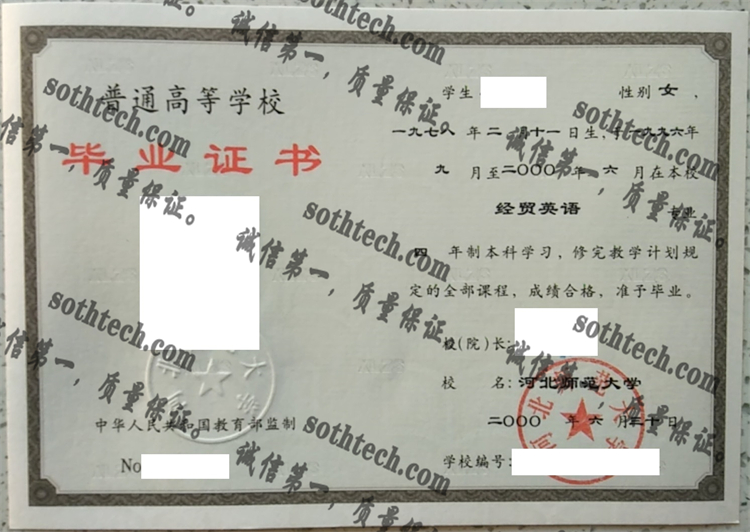 普通高等学校
毕业证书
中华人民共和国教育部监制
No
学生 性别 女 ,
一九七八 年 二 月 十一 日生, 于 一九九六年
九 月至二〇〇〇年 六 月在本校
经贸英语 专业
四 年制本科学习, 修完教学计划规
定的全部课程, 成绩合格, 准予毕业。
校(院)长:
校 名: 河北师范大学
二〇〇〇 年 六 月三十日
学校编号:
河北师范大学
sothtech.com
诚信第一,质量保证。
sothtech.com
诚信第一,质量保证。
sothtech.com
诚信第一,质量保证。
sothtech.com
诚信第一,质量保证。
sothtech.com
诚信第一,质量保证。
sothtech.com
诚信第一,质量保证。
sothtech.com
诚信第一,质量保证。